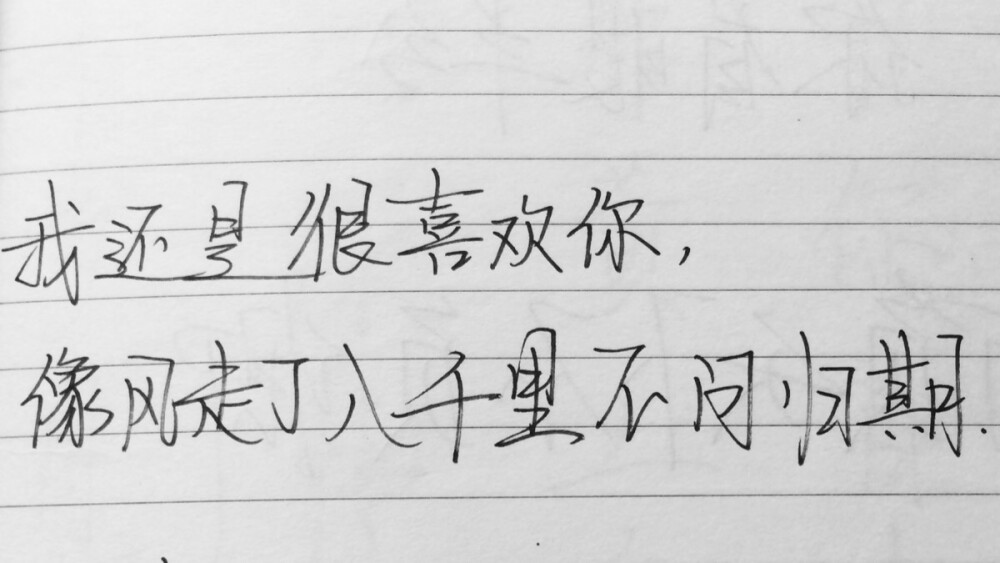 我还是很喜欢你,
像风走了八千里不问归期.